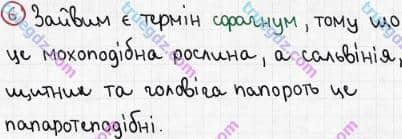 6 Зайвим є термін сфагнум, тому що
це мохоподібна рослина, а сальвінія,
щитник та чоловіча папороть це
папоротеподібні.